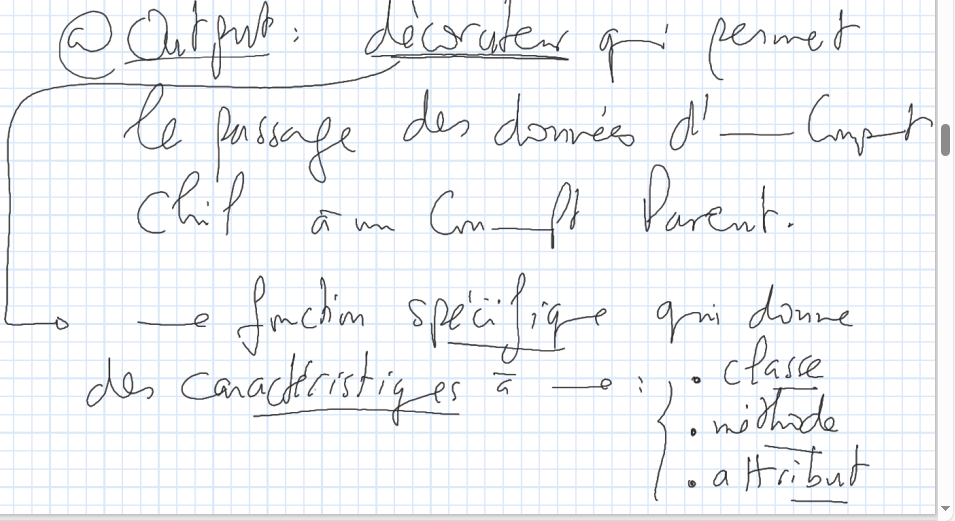 @Output : décorateur qui permet
le passage des données d'— Compt
Chil à un Com—pt Parent.
→ fonction spécifique qui donne
des caractéristiques à → : { . classe
. méthode
. attribut